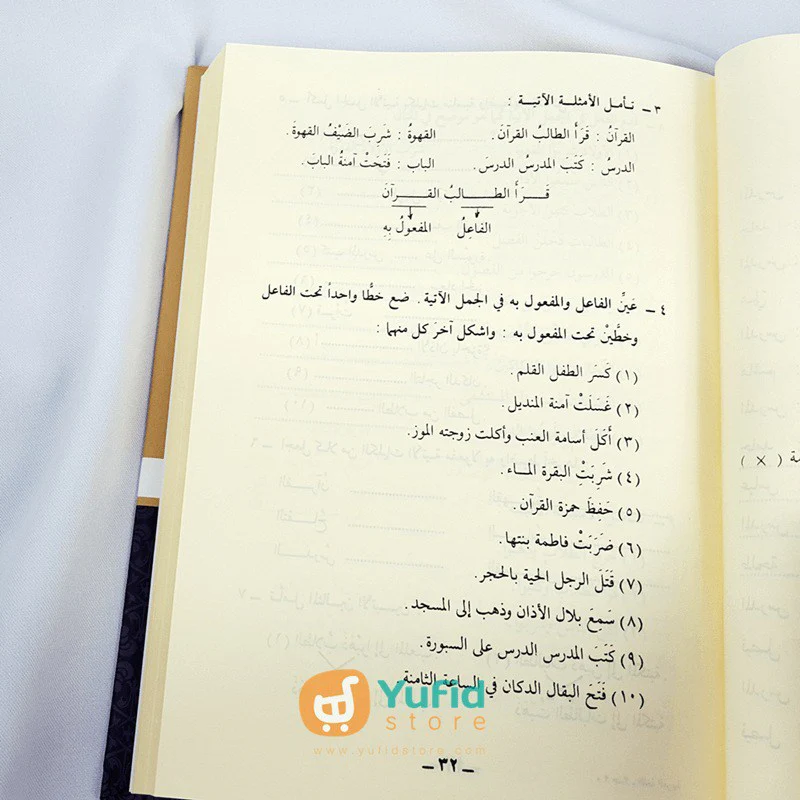 ٣ ــ تأمل الأمثلــة الآتيــة :
القرآنُ : قَرَأَ الطالبُ القرآنَ. القهوةُ : شَرِبَ الضَيْفُ القهوةَ.
الدرسُ : كَتَبَ المدرسُ الدرسَ. الباب : فَتَحَتْ آمنةُ البابَ.
قَــــرَأَ الطـــــــالبُ القـــــرآنَ
الفاعِلُ المفعولُ بِهِ
٤ ــ عَيِّنِ الفاعل والمفعول به في الجمل الآتية. ضع خطًّا واحداً تحت الفاعل
وخطَّيْنِ تحت المفعول به : واشكل آخرَ كل منهما :
(١) كَسَر الطفل القلم.
(٢) غَسَلَتْ آمنة المنديل.
(٣) أَكَلَ أسامة العنب وأكلت زوجته الموز.
(٤) شَرِبَتِ البقرة المـــاء.
(٥) حَفِظَ حمزة القرآن.
(٦) ضَرَبَتْ فاطمة بنتها.
(٧) قَتَلَ الرجل الحية بالحجر.
(٨) سَمِعَ بلال الأذان وذهب إلى المسجد.
(٩) كَتَبَ المدرس الدرس على السبورة.
(١٠) فَتَحَ البقال الدكان في الساعة الثامنة.
ــ ٣٢ ــ
( × )
Yufid
store
www.yufidstore.com